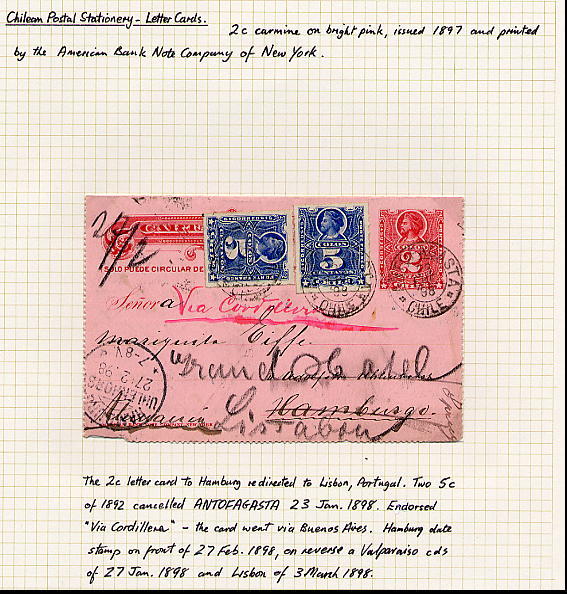 Chilean Postal Stationery - Letter Cards.
2c carmine on bright pink, issued 1897 and printed
by the American Bank Note Company of New York.
27/2
SOLO PUEDE CIRCULAR DE
COLON
5
CENTAVOS
COLON
5
CENTAVOS
2
CHILE
CHILE
Señora
Via Cordillera
Mariquita
Grand Hotel
Hamburgo.
Lisabon
27.2.98
7-8V
The 2c letter card to Hamburg redirected to Lisbon, Portugal. Two 5c
of 1892 cancelled ANTOFAGASTA 23 Jan. 1898. Endorsed
"Via Cordillera" - the card went via Buenos Aires. Hamburg date
stamp on front of 27 Feb. 1898, on reverse a Valparaiso cds
of 27 Jan. 1898 and Lisbon of 3 March 1898.